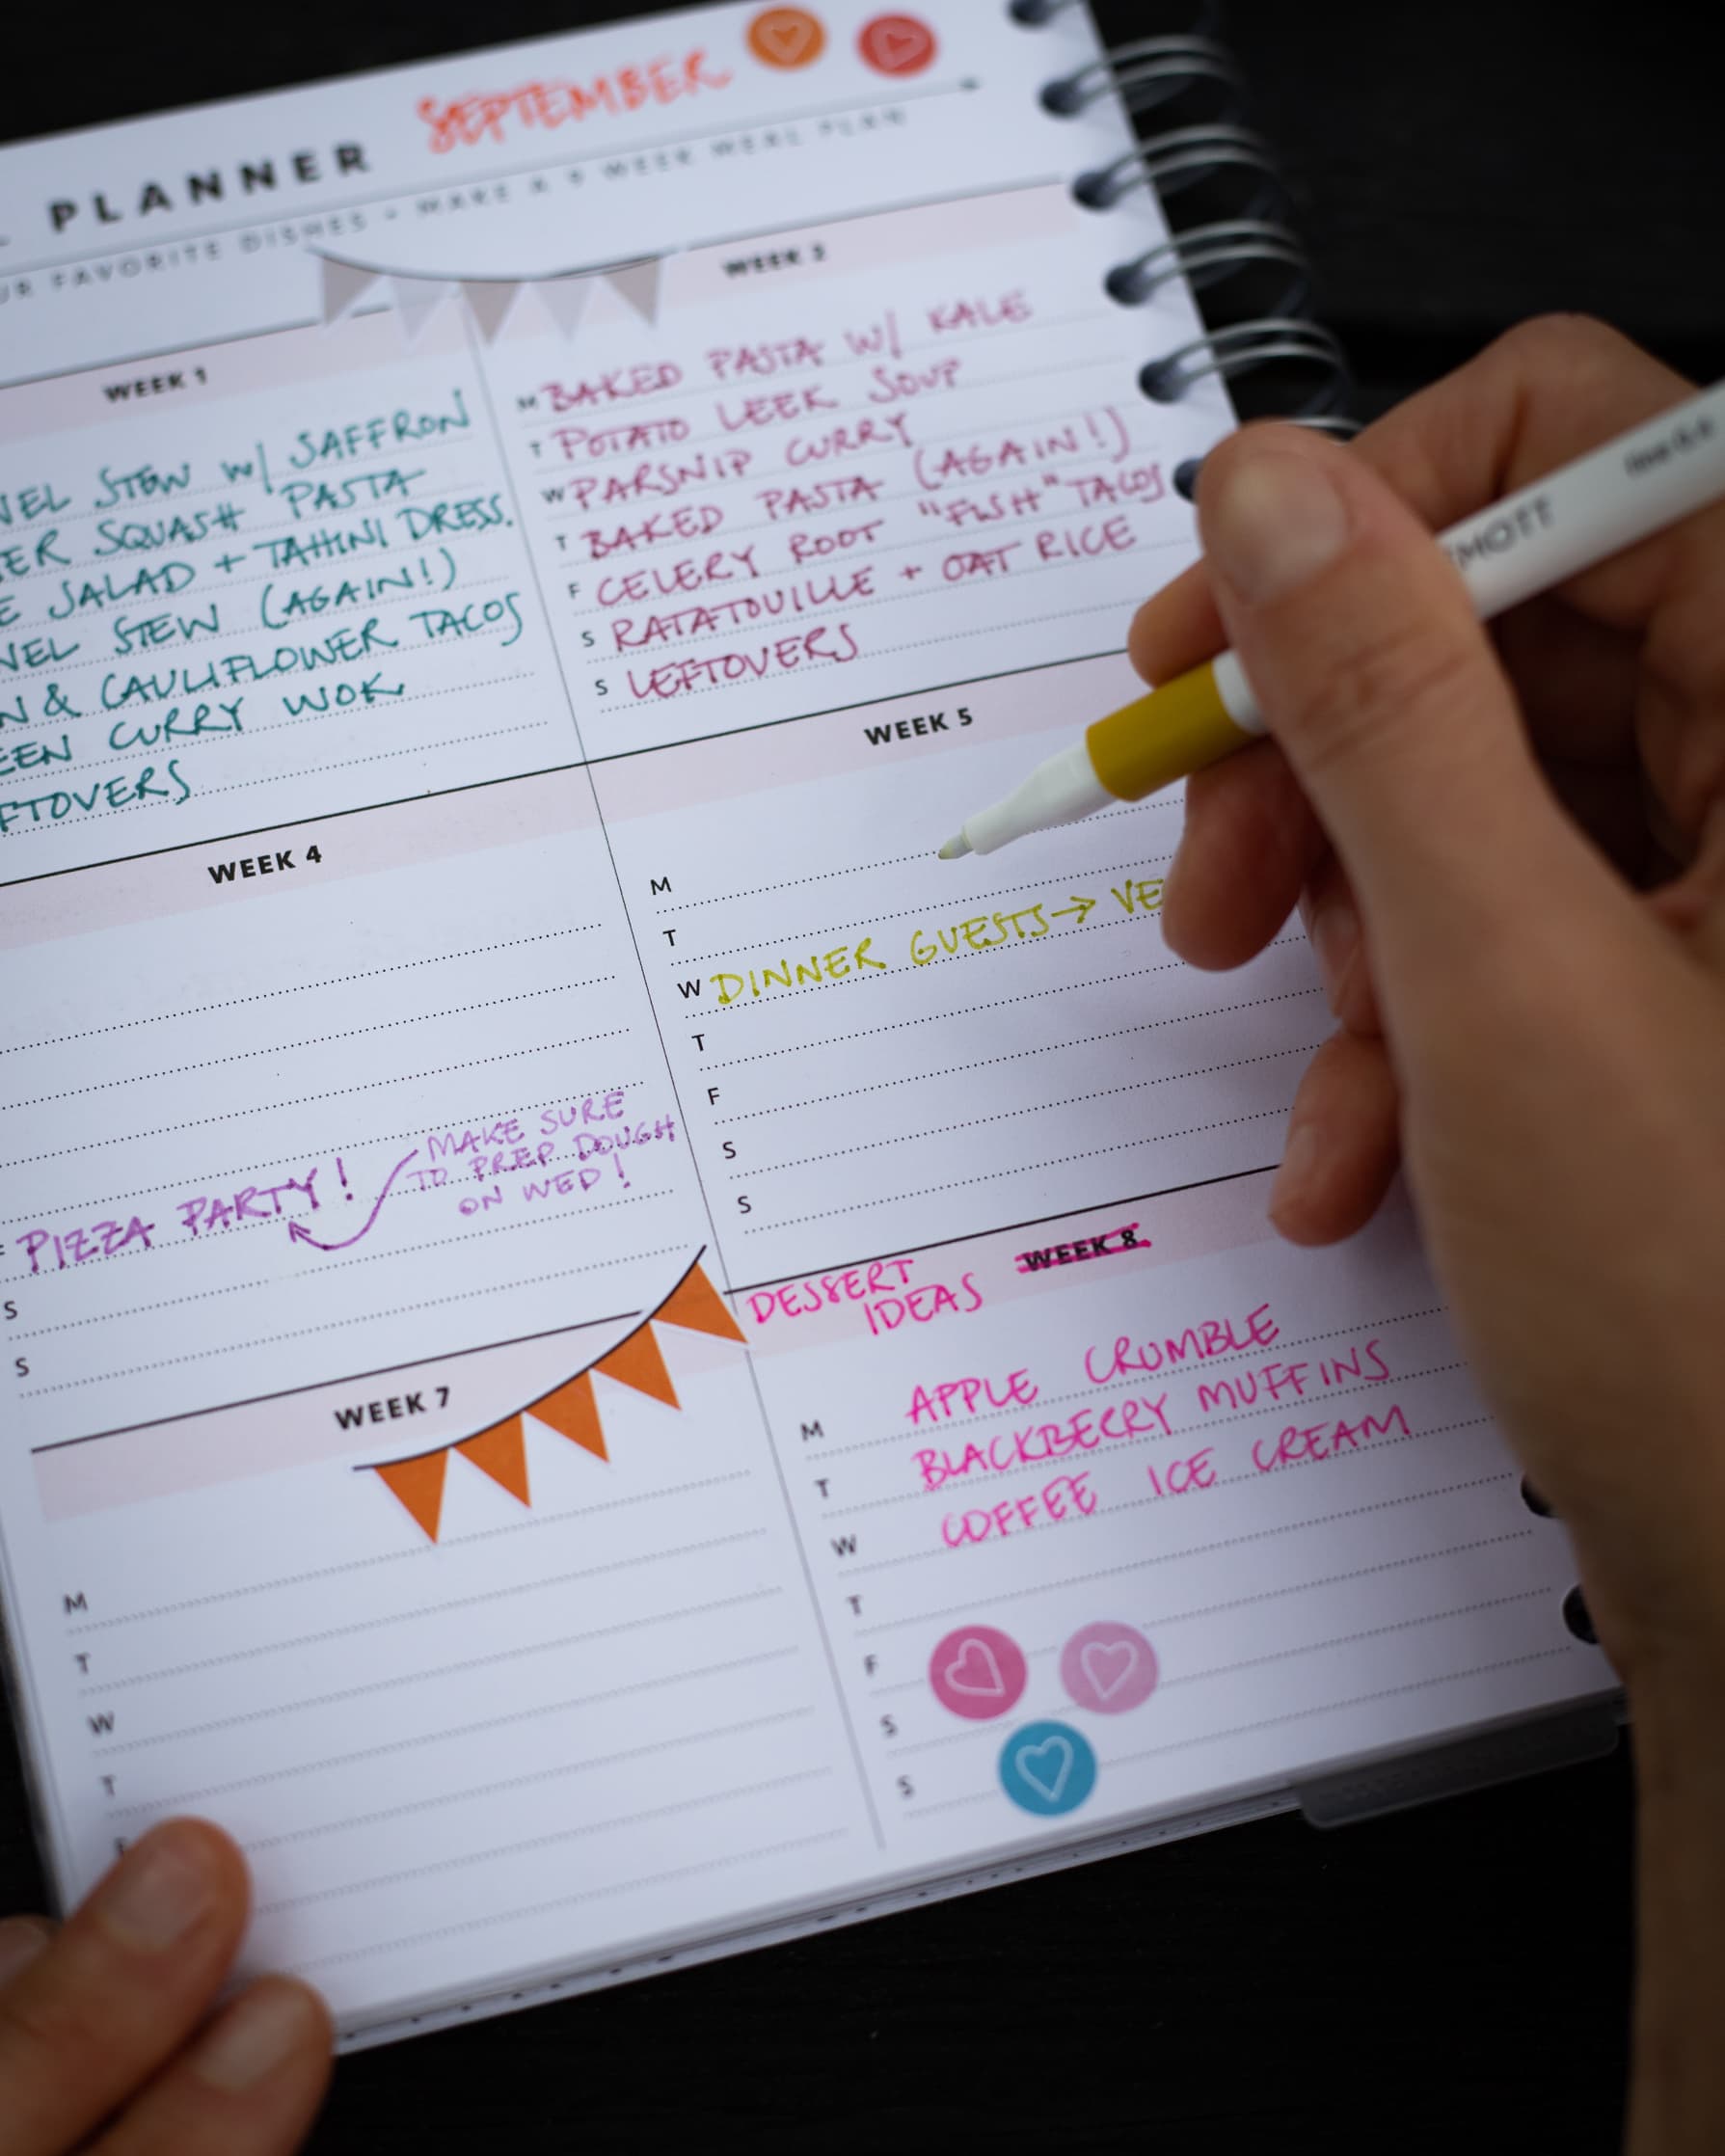 PLANNER SEPTEMBER
UR FAVORITE DISHES • MAKE A 9 WEEK MEAL PLAN
WEEK 1
NEL STEW W/ SAFFRON
ER SQUASH PASTA
E SALAD + TAHINI DRESS.
NEL STEW (AGAIN!)
N & CAULIFLOWER TACOS
EEN CURRY WOK
FTOVERS
WEEK 2
M BAKED PASTA W/ KALE
T POTATO LEEK SOUP
W PARSNIP CURRY
T BAKED PASTA (AGAIN!)
F CELERY ROOT "FISH" TACOS
S RATATOUILLE + OAT RICE
S LEFTOVERS
WEEK 4
F PIZZA PARTY!
MAKE SURE
TO PREP DOUGH
ON WED!
S
S
WEEK 5
M
T
W DINNER GUESTS → VE
T
F
S
S
WEEK 7
M
T
W
T
F
DESSERT
IDEAS
WEEK 8
M APPLE CRUMBLE
T BLACKBERRY MUFFINS
W COFFEE ICE CREAM
T
F
S
S